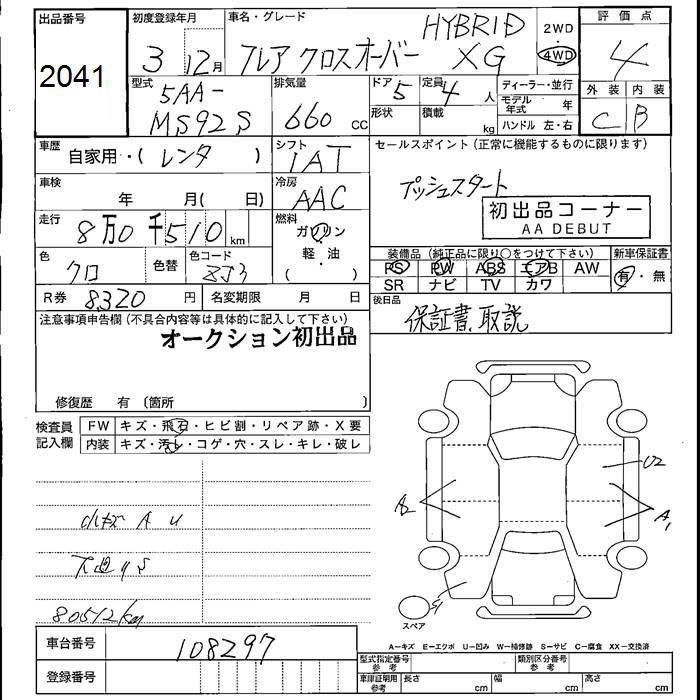 出品番号
2041
初度登録年月
3 12月
車名・グレード
フレア クロスオーバー HYBRID XG
2WD
4WD
評価点
4
外装 内装
C B
型式
5AA-
MS92S
排気量
660 cc
ドア 5
形状
定員 4 人
積載 kg
ディーラー・並行
モデル年式 年
ハンドル 左・右
車歴
自家用・(レンタ )
シフト
IAT
セールスポイント(正常に機能するものに限ります)
プッシュスタート
初出品コーナー
AA DEBUT
車検
年 月( 日)
冷房
AAC
走行
8万0千510 km
燃料
ガソリン
・
軽・油
( )
色
クロ
色替
色コード
ZJ3
装備品(純正品に限り○をつけて下さい)
PS PW ABS エアB AW
SR ナビ TV カワ
新車保証書
有・無
R券 8320 円
名変期限 月 日
後日品
保証書、取説
注意事項申告欄(不具合内容等は具体的に記入して下さい)
オークション初出品
修復歴 有(箇所 )
検査員
記入欄
FW キズ・飛石・ヒビ割・リペア跡・X要
内装 キズ・汚レ・コゲ・穴・スレ・キレ・破レ
小キズ A U
下廻りS
80512km
A2
U2
A1
S1
スペア
A―キズ E―エクボ U―凹み W―補修跡 S―サビ C―腐食 XX―交換済
車台番号
108297
登録番号
型式指定番号
参考
類別区分番号
参考
車庫証明用
参考
長さ cm
幅 cm
高さ cm